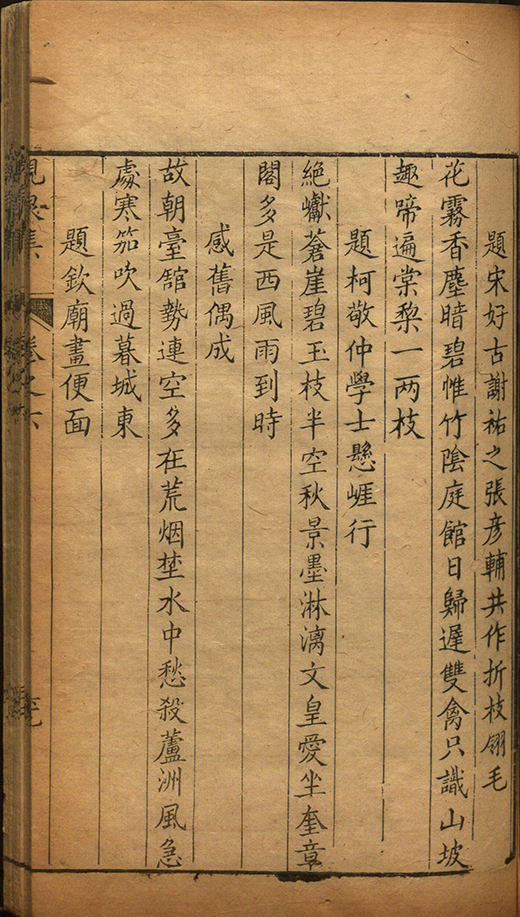 題宋好古謝祐之張彦輔共作折枝翎毛
花霧香塵暗碧惟竹陰庭館日歸遲雙禽只識山坡
趣啼遍棠棃一两枝
題柯敬仲學士懸崕行
絶巘蒼崖碧玉枝半空秋景墨淋漓文皇愛坐奎章
閣多是西風雨到時
感舊偶成
故朝臺舘勢連空多在荒烟埜水中愁殺蘆洲風急
處寒笳吹過暮城東
題欽廟畫便面
集 卷之六